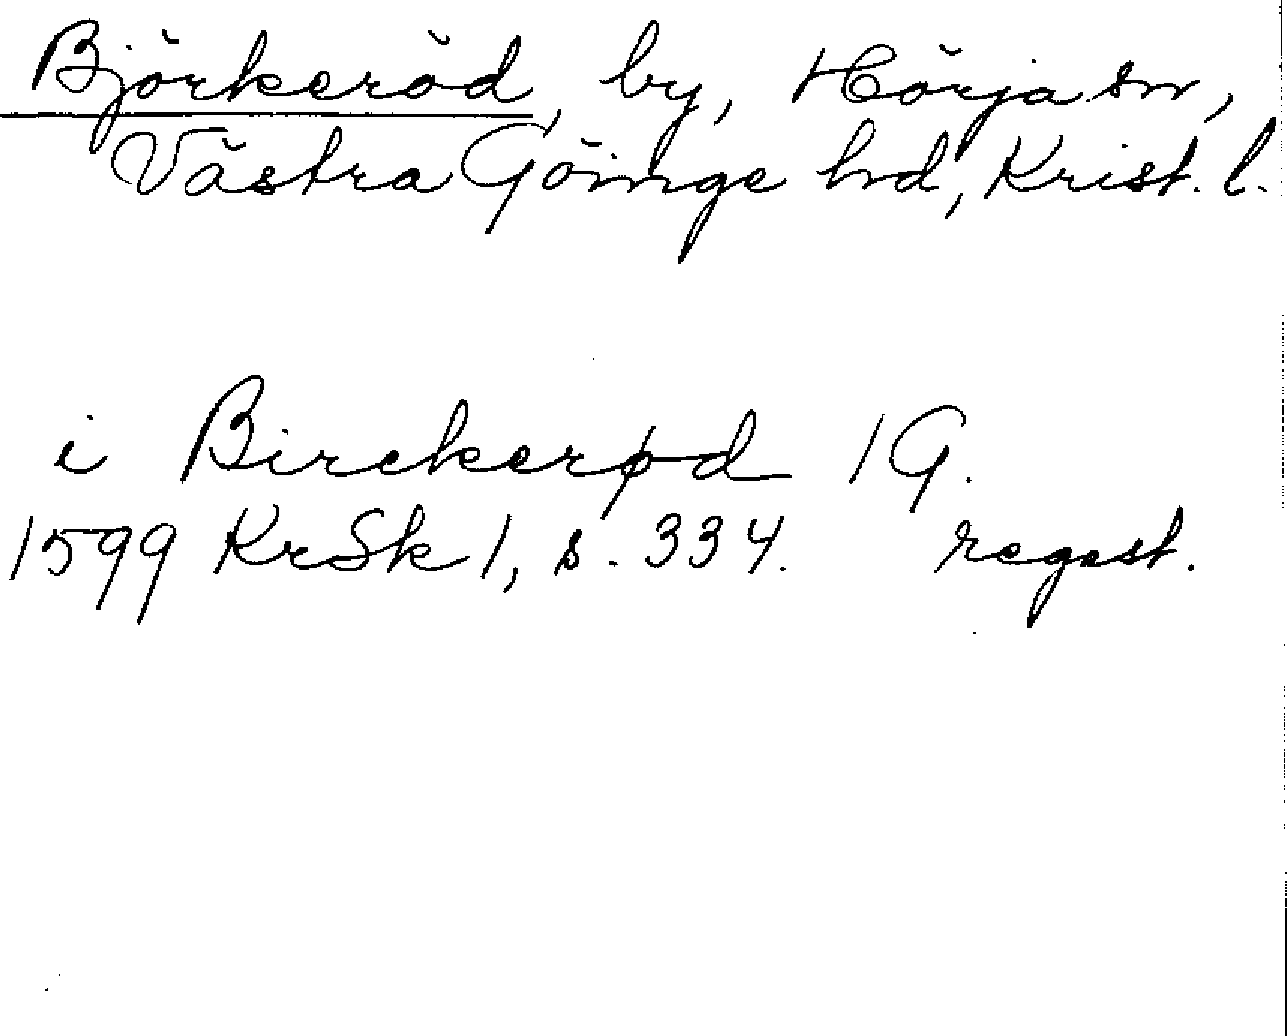 Björkeröd, by, Hörja sn,
Västra Göinge hd, Krist. l.
i Birckerød 1 G.
1599 KrSk 1, s. 334. regest.